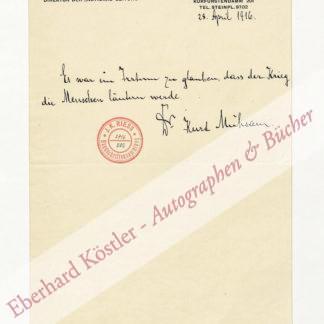 KURFÜRSTENDAMM 201
TEL. STEINPL. 9702
25. April 1916.
Es war ein Irrtum zu glauben, dass der Krieg
die Menschen läutern werde.
Dr. Kurt Mühsam
J. K. RIESS
1916
Eberhard Köstler - Autographen & Bücher